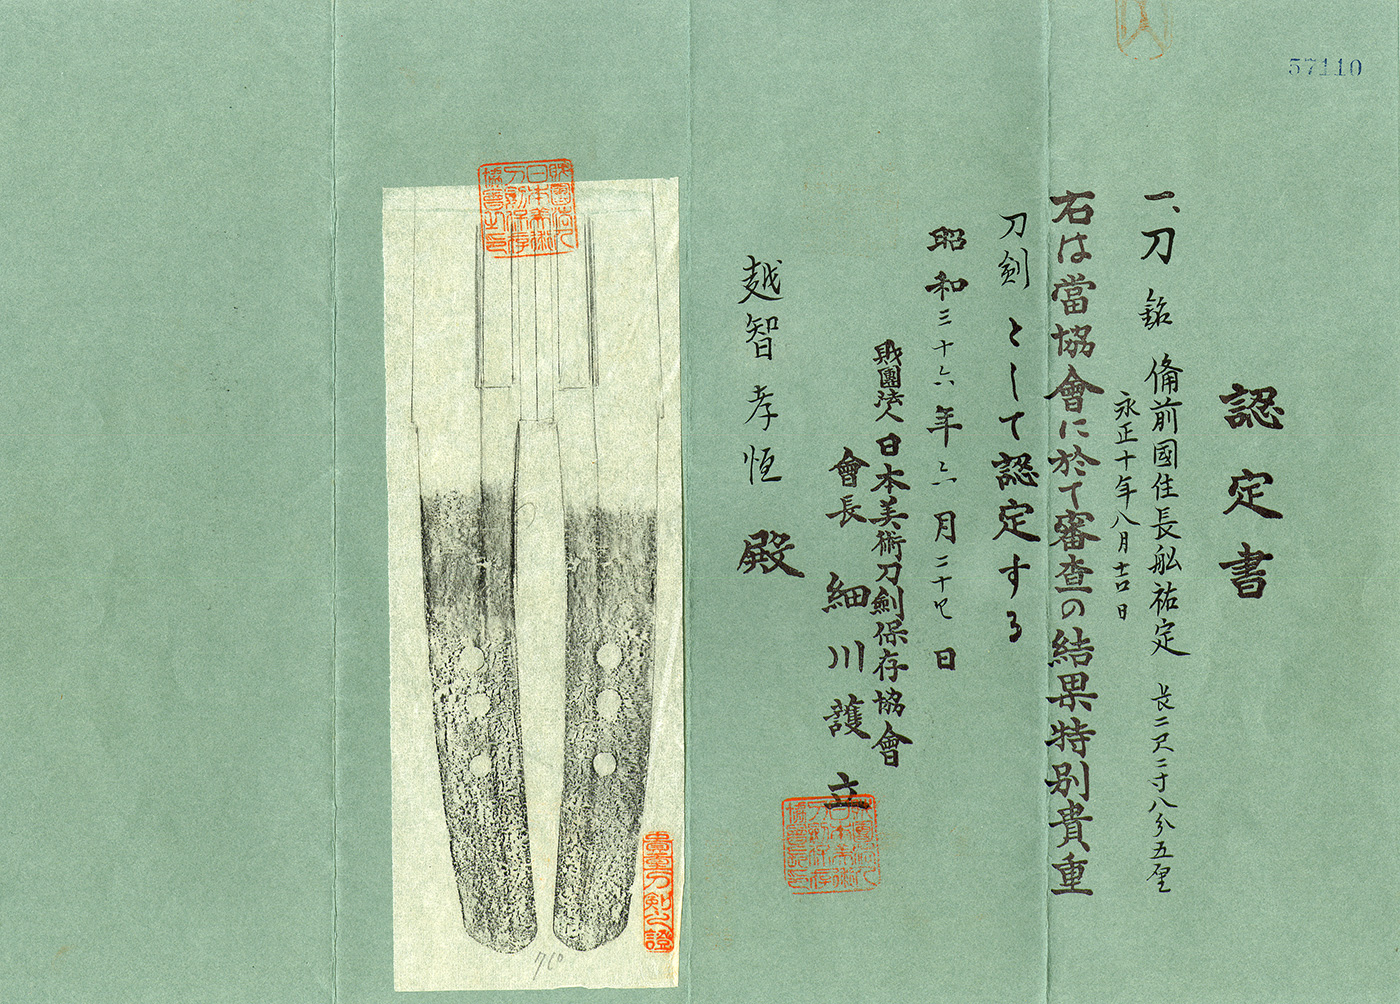 57110
認定書
一、刀 銘 備前國住長舩祐定 長二尺二寸八分五厘
永正十年八月十吉日
右は當協會に於て審査の結果特別貴重
刀剣として認定する
昭和三十六年六月二十四日
財團法人日本美術刀剣保存協會
會長 細川護立
越智孝恒 殿
財團法人日本美術刀剣保存協會之印
貴重刀剣之證